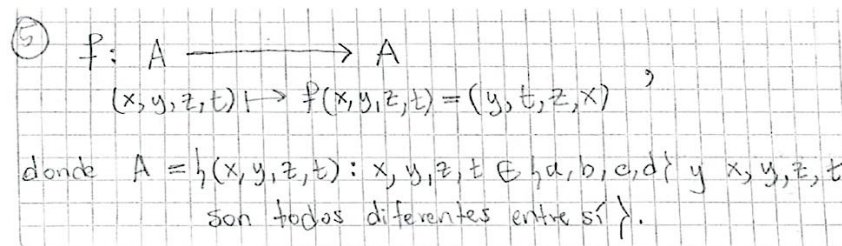 ⑤ f: A ⟶ A
(x,y,z,t) ↦ f(x,y,z,t) = (y,t,z,x) ,
donde A = {(x,y,z,t) : x,y,z,t ∈ {a,b,c,d} y x,y,z,t
son todos diferentes entre sí}.